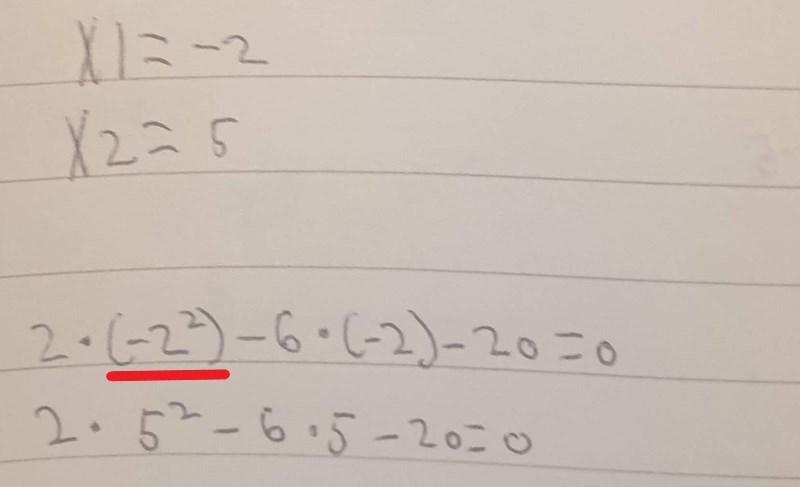 X1 = -2
X2 = 5
2 · (-2²) - 6 · (-2) - 20 = 0
2 · 5² - 6 · 5 - 20 = 0